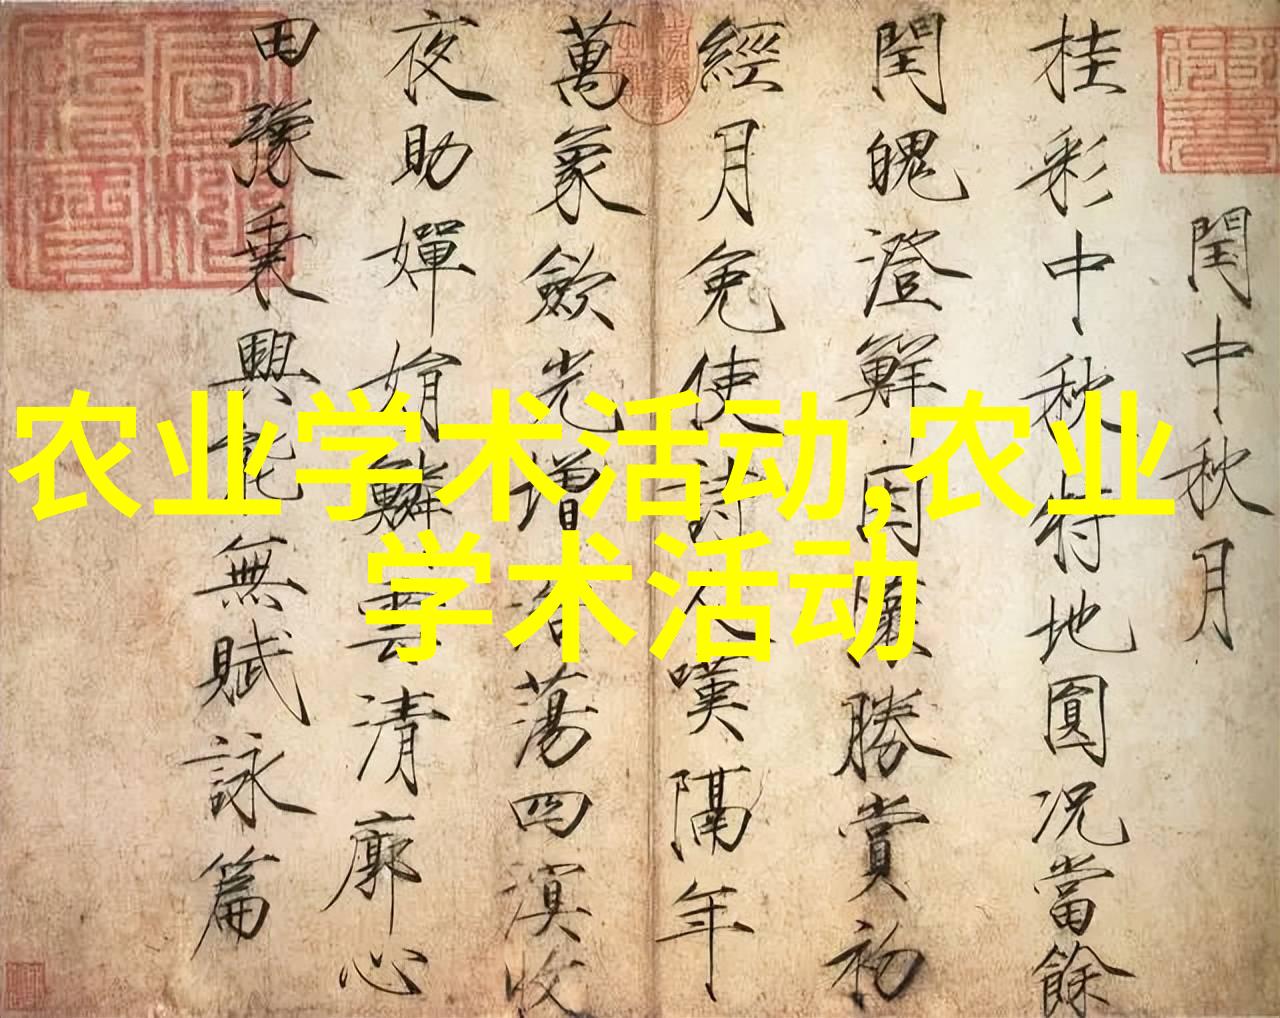 农业学术活动,农业
学术活动
閏中秋月
桂彩中秋特地圓況當餘
閏魄澄鮮因懷勝賞初
經月免使詩人嘆隔年
萬象歛光增浩蕩四溟收
夜助嬋娟鱗雲清廓心
田豫乗興能無賦詠篇